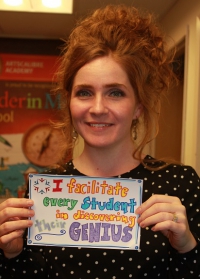 ARTSCALIBUR
ACADEMY
der in M
ool
I facilitate
every student
in discovering
their GENIUS